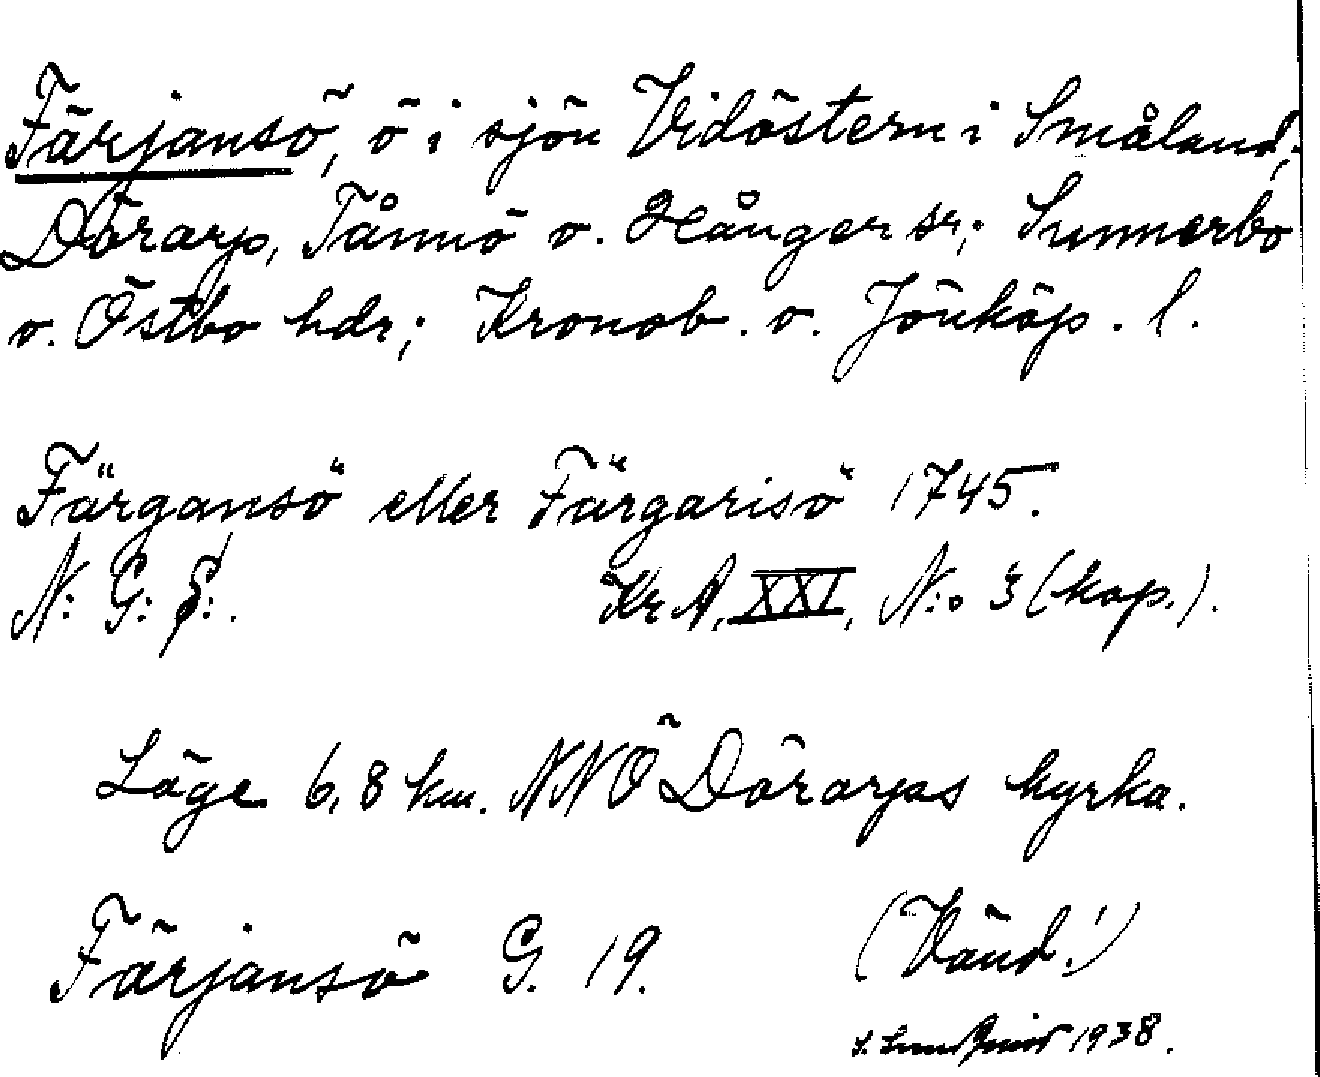 Färjansö, ö i sjön Vidöstern i Småland;
Dörarp, Tånnö o. Hånger sr; Sunnerbo
o. Östbo hdr; Kronob. o. Jönköp. l.
Färgansö eller Färgarisö 1745.
N: G: S:. Kr A, XXI, N:o 3 (kop.).
Läge 6,8 km. NNÖ Dörarps kyrka.
Färjansö G. 19. (Vänd!)
1938.